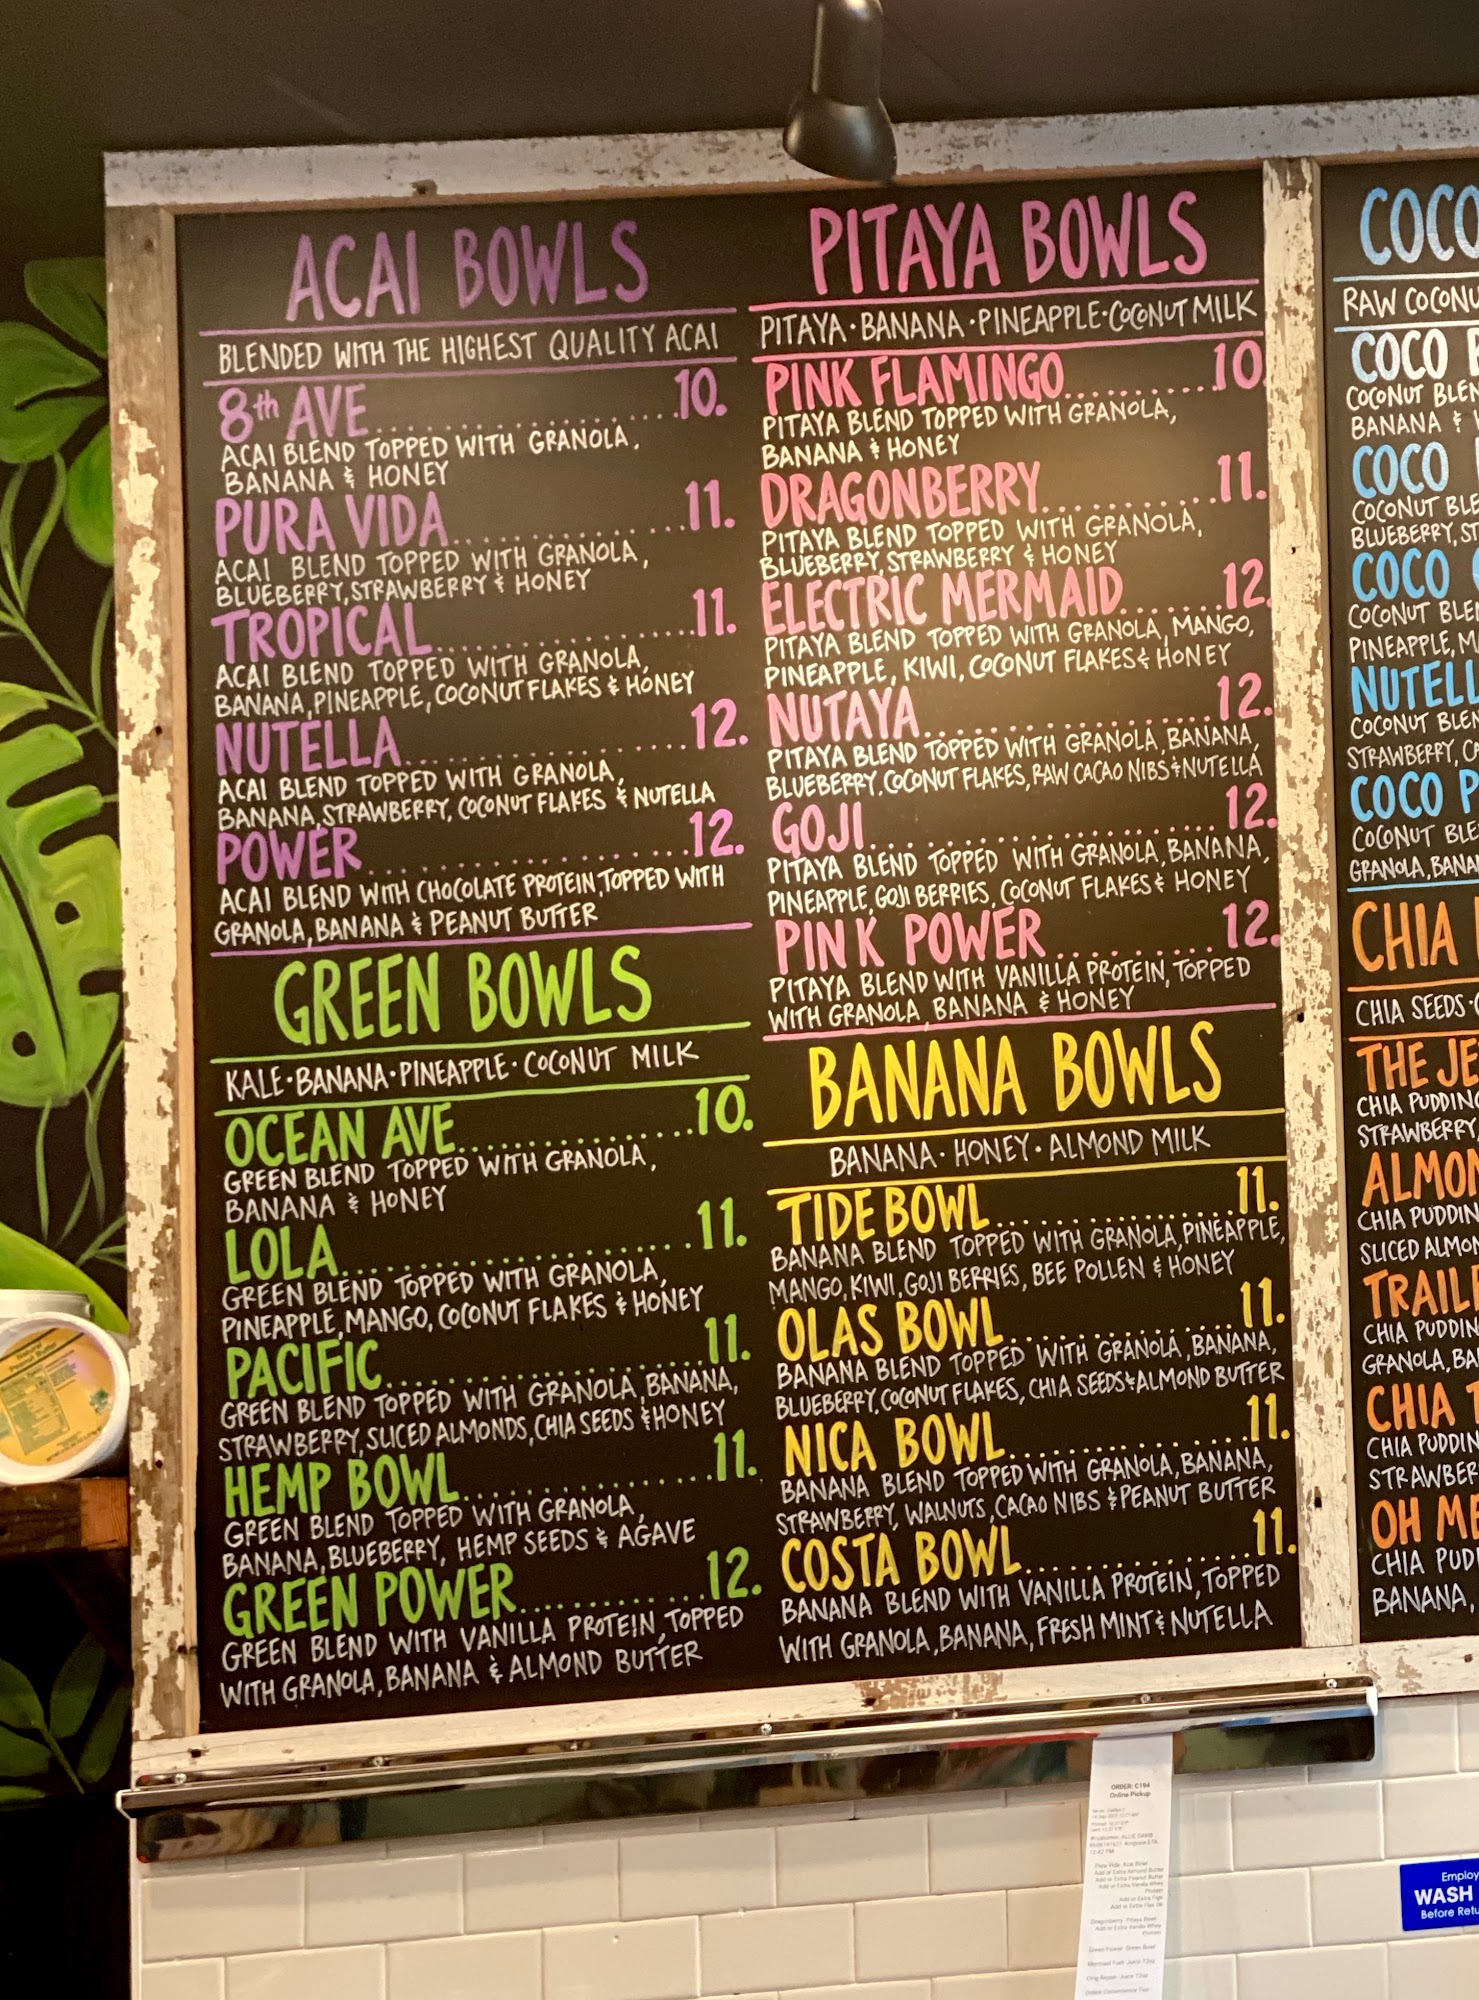 ACAI BOWLS
BLENDED WITH THE HIGHEST QUALITY ACAI
8th AVE..................10.
ACAI BLEND TOPPED WITH GRANOLA,
BANANA & HONEY
PURA VIDA..............11.
ACAI BLEND TOPPED WITH GRANOLA,
BLUEBERRY, STRAWBERRY & HONEY
TROPICAL................11.
ACAI BLEND TOPPED WITH GRANOLA,
BANANA, PINEAPPLE, COCONUT FLAKES & HONEY
NUTELLA.................12.
ACAI BLEND TOPPED WITH GRANOLA,
BANANA, STRAWBERRY, COCONUT FLAKES & NUTELLA
POWER...................12.
ACAI BLEND WITH CHOCOLATE PROTEIN, TOPPED WITH
GRANOLA, BANANA & PEANUT BUTTER
GREEN BOWLS
KALE · BANANA · PINEAPPLE · COCONUT MILK
OCEAN AVE...............10.
GREEN BLEND TOPPED WITH GRANOLA,
BANANA & HONEY
LOLA......................11.
GREEN BLEND TOPPED WITH GRANOLA,
PINEAPPLE, MANGO, COCONUT FLAKES & HONEY
PACIFIC...................11.
GREEN BLEND TOPPED WITH GRANOLA, BANANA,
STRAWBERRY, SLICED ALMONDS, CHIA SEEDS & HONEY
HEMP BOWL...............11.
GREEN BLEND TOPPED WITH GRANOLA,
BANANA, BLUEBERRY, HEMP SEEDS & AGAVE
GREEN POWER............12.
GREEN BLEND WITH VANILLA PROTEIN, TOPPED
WITH GRANOLA, BANANA & ALMOND BUTTER
PITAYA BOWLS
PITAYA · BANANA · PINEAPPLE · COCONUT MILK
PINK FLAMINGO..........10
PITAYA BLEND TOPPED WITH GRANOLA,
BANANA & HONEY
DRAGONBERRY...........11.
PITAYA BLEND TOPPED WITH GRANOLA,
BLUEBERRY, STRAWBERRY & HONEY
ELECTRIC MERMAID.......12.
PITAYA BLEND TOPPED WITH GRANOLA, MANGO,
PINEAPPLE, KIWI, COCONUT FLAKES & HONEY
NUTAYA..................12.
PITAYA BLEND TOPPED WITH GRANOLA, BANANA,
BLUEBERRY, COCONUT FLAKES, RAW CACAO NIBS & NUTELLA
GOJI......................12.
PITAYA BLEND TOPPED WITH GRANOLA, BANANA,
PINEAPPLE, GOJI BERRIES, COCONUT FLAKES & HONEY
PINK POWER.............12.
PITAYA BLEND WITH VANILLA PROTEIN, TOPPED
WITH GRANOLA, BANANA & HONEY
BANANA BOWLS
BANANA · HONEY · ALMOND MILK
TIDE BOWL................11.
BANANA BLEND TOPPED WITH GRANOLA, PINEAPPLE,
MANGO, KIWI, GOJI BERRIES, BEE POLLEN & HONEY
OLAS BOWL...............11.
BANANA BLEND TOPPED WITH GRANOLA, BANANA,
BLUEBERRY, COCONUT FLAKES, CHIA SEEDS & ALMOND BUTTER
NICA BOWL...............11.
BANANA BLEND TOPPED WITH GRANOLA, BANANA,
STRAWBERRY, WALNUTS, CACAO NIBS & PEANUT BUTTER
COSTA BOWL.............11.
BANANA BLEND WITH VANILLA PROTEIN, TOPPED
WITH GRANOLA, BANANA, FRESH MINT & NUTELLA
COCO
RAW COCONU
COCO
COCONUT BLEN
BANANA &
COCO
COCONUT BLE
BLUEBERRY, ST
COCO
COCONUT BLE
PINEAPPLE, M
NUTELL
COCONUT BLEN
STRAWBERRY, C
COCO P
COCONUT BLE
GRANOLA, BANA
CHIA
CHIA SEEDS ·
THE JE
CHIA PUDDING
STRAWBERRY
ALMON
CHIA PUDDIN
SLICED ALMON
TRAIL
CHIA PUDDIN
GRANOLA, BA
CHIA
CHIA PUDDIN
STRAWBER
OH M
CHIA PUD
BANANA,
Natural
Peanut Butter
ORDER: C194
Online Pickup
Pura Vida Acai Bowl
Add or Extra Almond Butter
Add or Extra Peanut Butter
Add or Extra Vanilla Whey
Protein
Dragonberry Pitaya Bowl
Add or Extra Vanilla Whey
Protein
Green Power Green Bowl
Employ
WASH
Before Retu